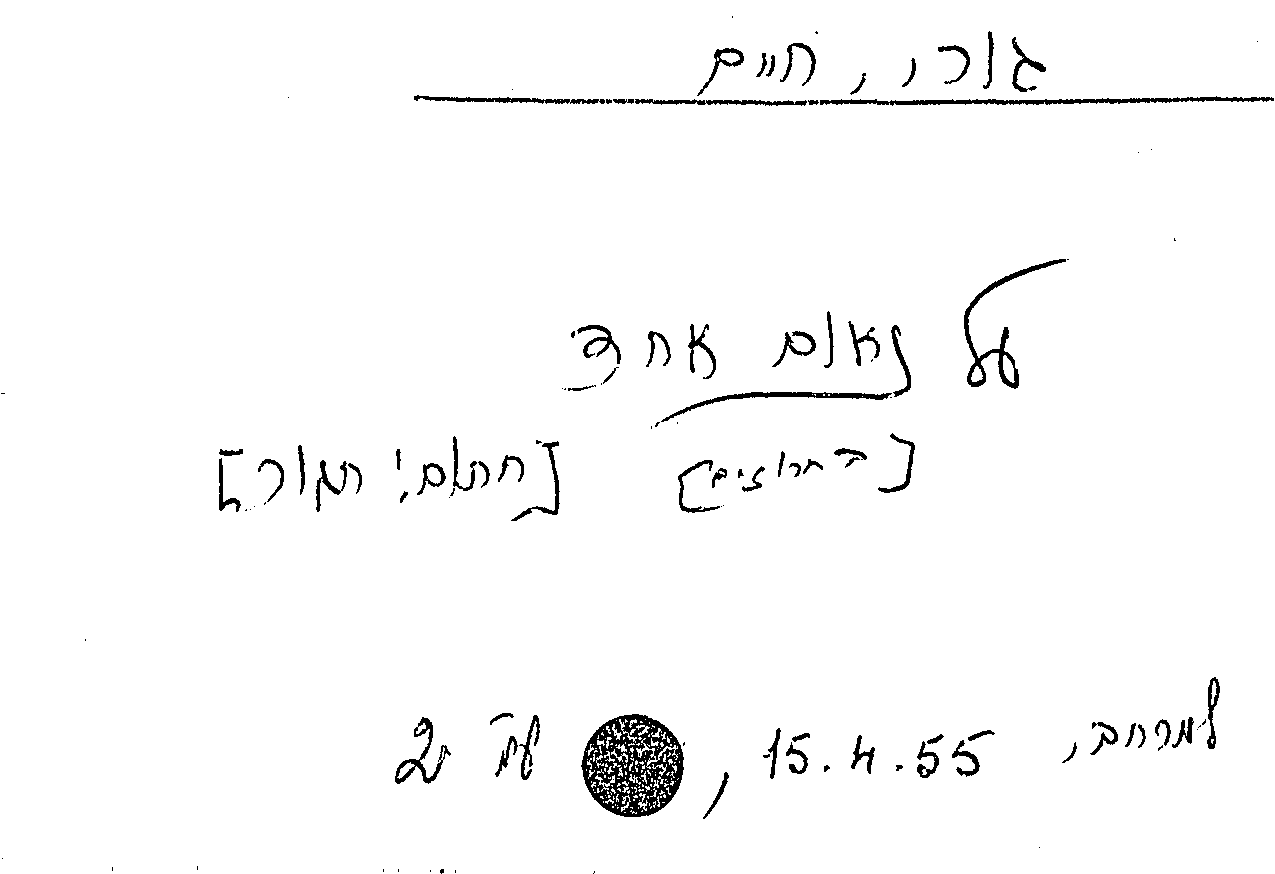 גורי, חיים
על נאום אחד
[בחרוזים] [חתום: חגור]
למרחב, 15.4.55, עמ' 2